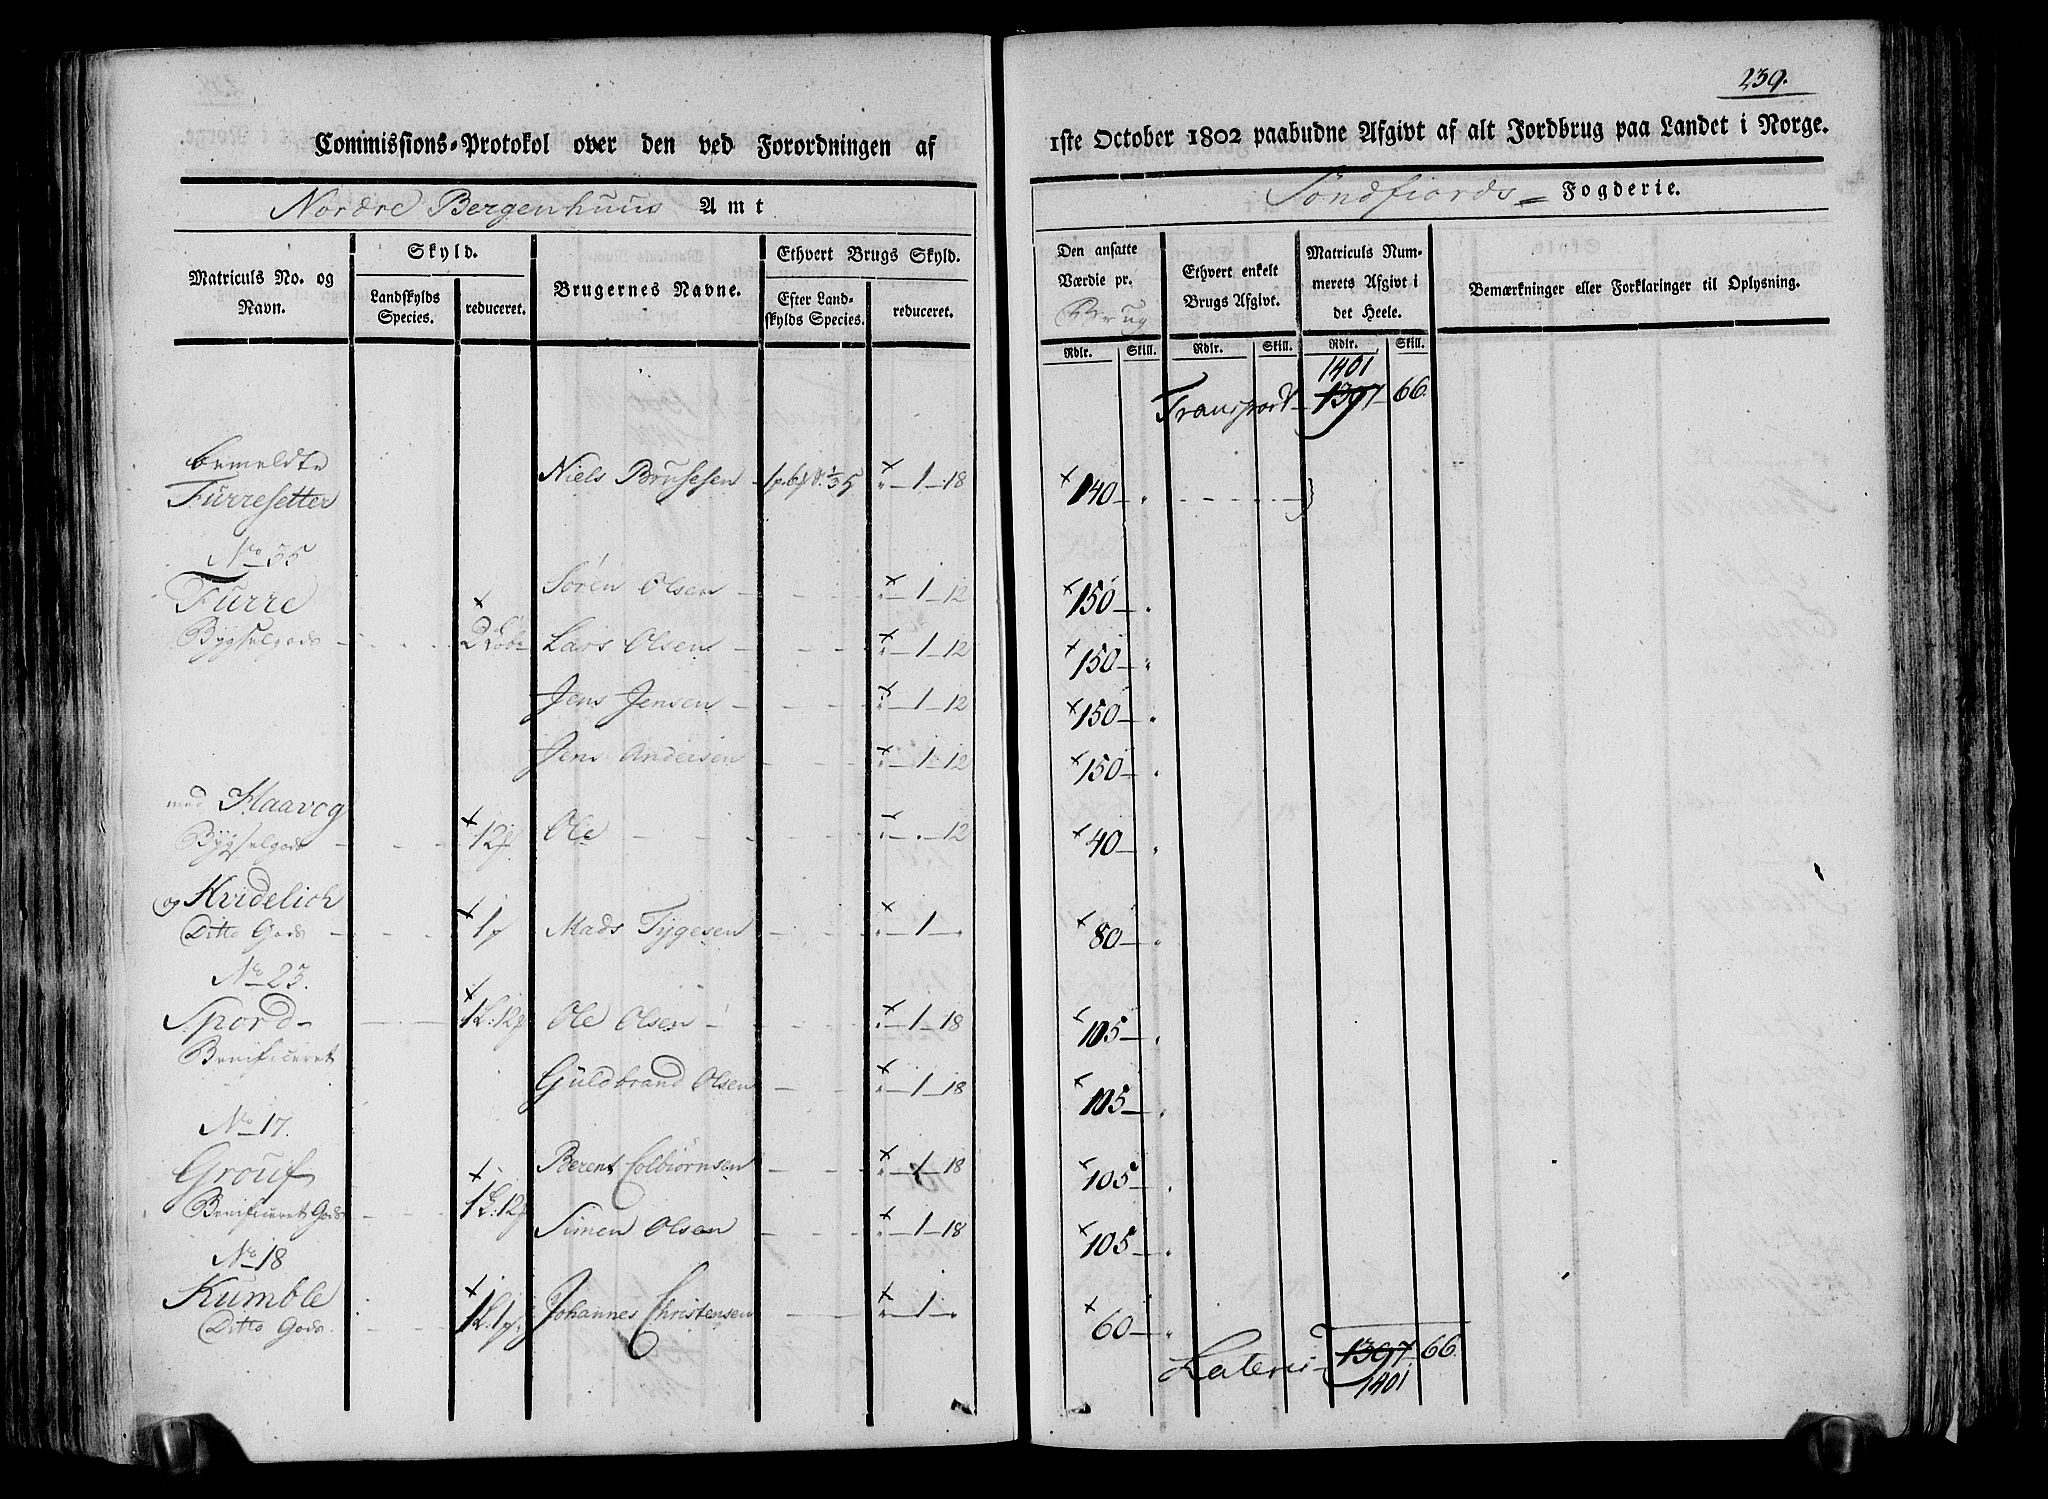 239.
Commissions-Protokol over den ved Forordningen af 1ste October 1802 paabudne Afgivt af alt Jordbrug paa Landet i Norge.
Nordre Bergenhuus Amt
Söndfiords Fogderie.
Matriculs No. og Navn.
Skyld.
Landskylds Species.
reduceret.
Brugernes Navne.
Ethvert Brugs Skyld.
Efter Landskylds Species.
reduceret.
Den ansatte Værdie pr. Brug
Rdlr. Skill.
Ethvert enkelt Brugs Afgivt.
Rdlr. Skill.
Matriculs Nummerets Afgivt i det Heele.
Rdlr. Skill.
Bemærkninger eller Forklaringer til Oplysning.
1401
Transport 1397 66.
bemeldte
Furresetter Niels Brusesen 1 18 140
No 35
Furre Sören Olsen 1 12 150
Bygselgods Lars Olsen 1 12 150
Jens Jensen 1 12 150
Jens Andersen 1 12 150
med Haavog
Bygselgods Ole 12 40
og Hvidelich
Ditto Gods Mads Tygesen 1 80
No 23.
Spord Ole Olsen 1 18 105
Benificeret
Guldbrand Olsen 1 18 105
No 17.
Grouf Berent Colbiörnsen 1 18 105
Benificeret Gods Simen Olsen 1 18 105
No 18
Kumble Johannes Christensen 1 60
Ditto Gods.
Lateris 1397 66
1401